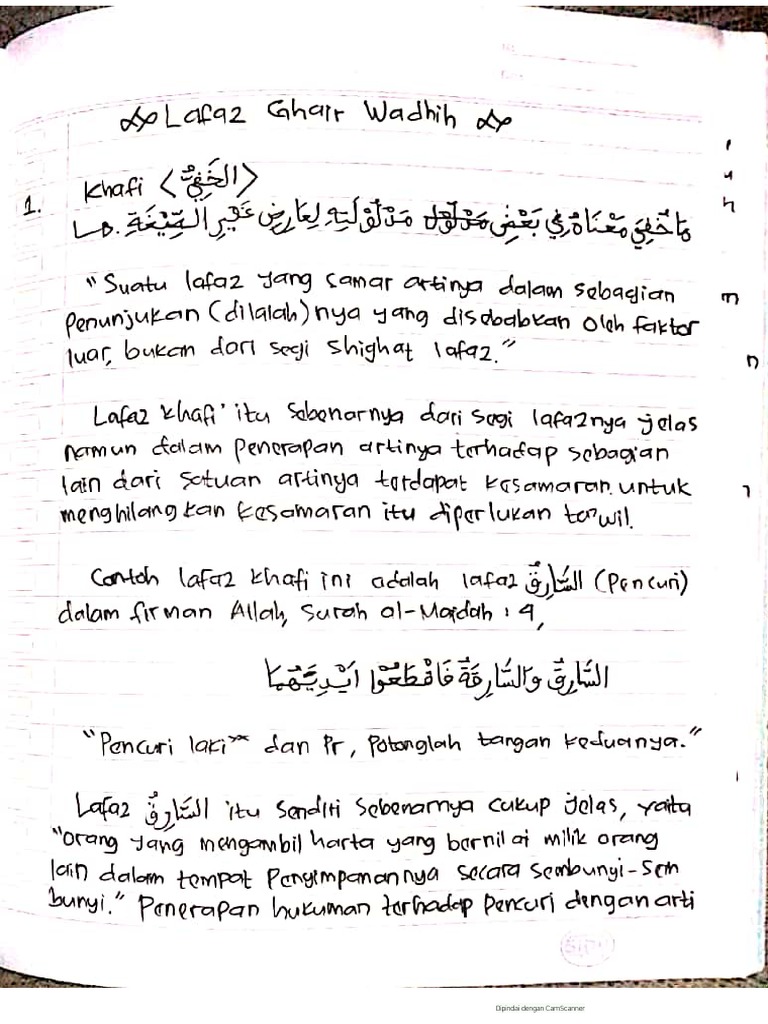 Lafaz Ghair Wadhih
1. Khafi <الخَفِيُّ>
مَا خَفِيَ مَعْنَاهُ فِي بَعْضِ مَدْلُوْلَاتِهِ لِعَارِضٍ غَيْرِ الصِّيْغَةِ
"Suatu lafaz yang samar artinya dalam sebagian
Penunjukan (dilalah)nya yang disebabkan oleh faktor
luar, bukan dari segi shighat lafaz."
Lafaz khafi' itu sebenarnya dari segi lafaznya jelas
namun dalam penerapan artinya terhadap sebagian
lain dari satuan artinya terdapat kesamaran. untuk
menghilangkan kesamaran itu diperlukan ta'wil.
Contoh lafaz khafi ini adalah lafaz السَّارِقُ (Pencuri)
dalam firman Allah, Surah al-Maidah : 4,
السَّارِقُ وَالسَّارِقَةُ فَاقْطَعُوْا اَيْدِيَهُمَا
"Pencuri laki² dan Pr, Potonglah tangan keduanya."
Lafaz السَّارِقُ itu sendiri sebenarnya cukup jelas, yaitu
"orang yang mengambil harta yang bernilai milik orang
lain dalam tempat Penyimpanannya secara sembunyi-sem
bunyi." Penerapan hukuman terhadap pencuri dengan arti
Dipindai dengan CamScanner